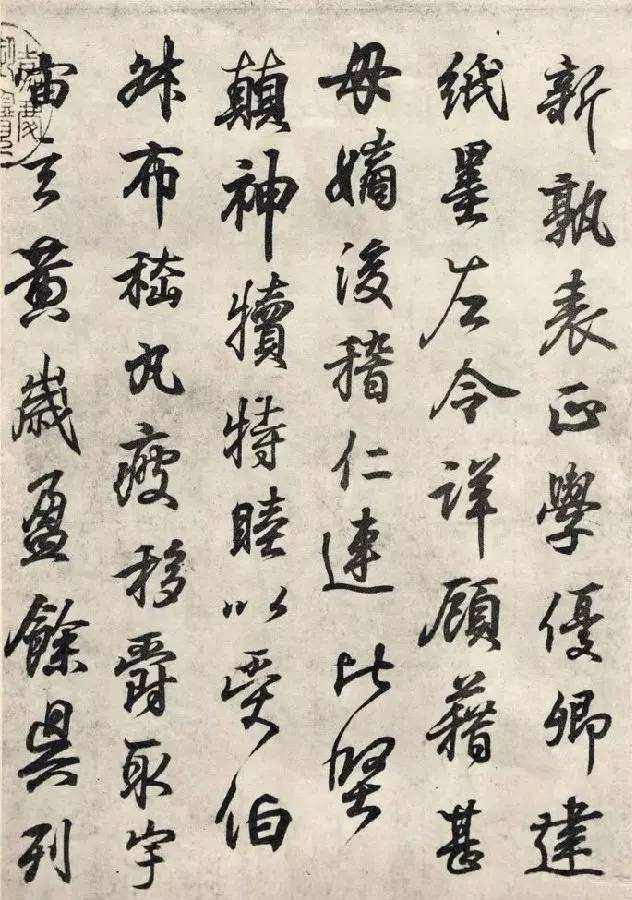 新孰表正學優卿建
紙墨左令詳顧藉甚
母嫡後稽仁連比堅
顛神犢特睦以受伯
布嵇丸移爵取宇
宙玄黃歲盈餘列